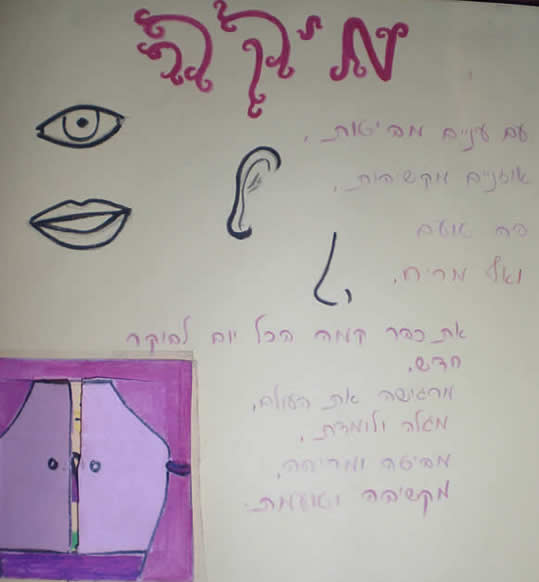 מיקה
עם עניים מביטות,
אוזניים מקשיבות,
פה טועם
ואף מריח.
את כבר קמה הכל יום לבוקר
חדש.
מרגישה את העולם,
מגלה ולומדת,
מביטה ומריחה,
מקשיבה וטועמת.